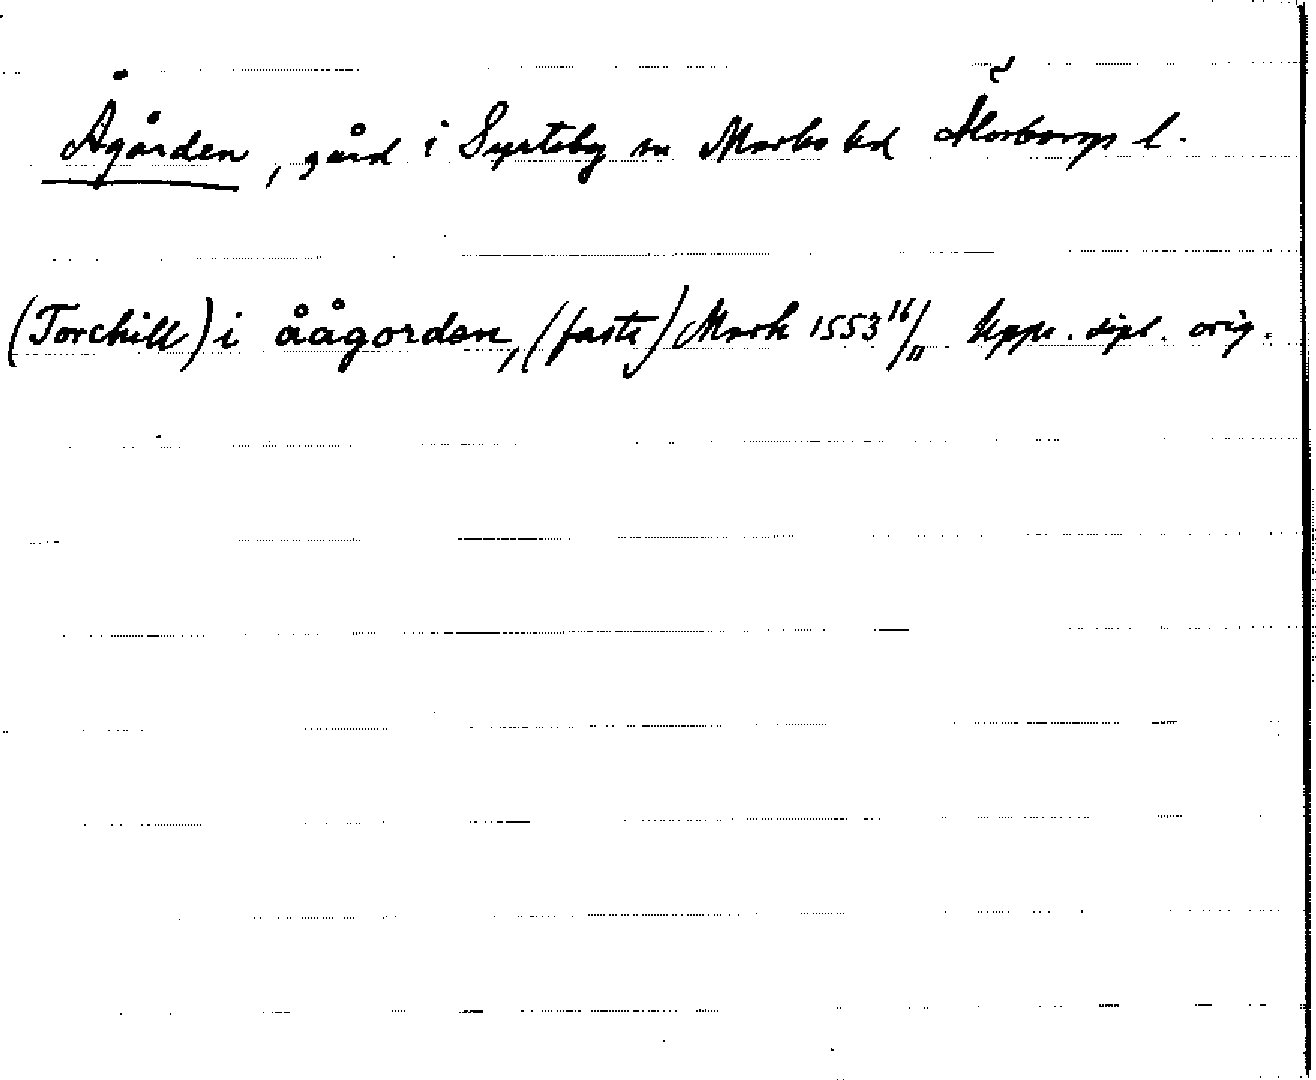 Ågården, gård i Surteby sn Marks hd Älvsborgs l.
(Torchill) i åågorden, (faste) Mark 1553 16/11 Upps. dipl. orig.